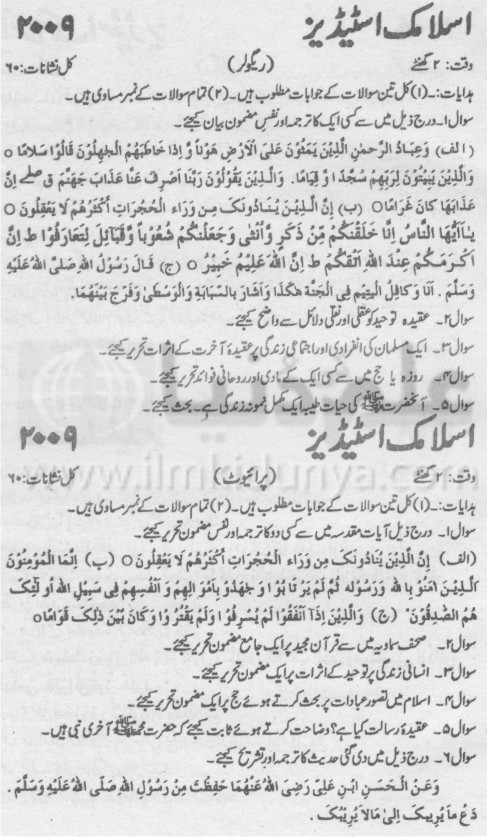 اسلامک اسٹیڈیز ۲۰۰۹
وقت: ۲ گھنٹے (ریگولر) کل نشانات: ۶۰
ہدایات:۔ (۱) کل تین سوالات کے جوابات مطلوب ہیں۔ (۲) تمام سوالات کے نمبر مساوی ہیں۔
سوال۱۔ درج ذیل میں سے کسی ایک کا ترجمہ اور نفسِ مضمون بیان کیجئے۔
(الف) وَعِبَادُ الرَّحْمٰنِ الَّذِیْنَ یَمْشُوْنَ عَلَی الْاَرْضِ ھَوْنًا وَّ اِذَا خَاطَبَھُمُ الْجٰھِلُوْنَ قَالُوْا سَلَامًا ○
وَالَّذِیْنَ یَبِیْتُوْنَ لِرَبِّھِمْ سُجَّدًا وَّ قِیَامًا۔ وَالَّذِیْنَ یَقُوْلُوْنَ رَبَّنَا اصْرِفْ عَنَّا عَذَابَ جَھَنَّمَ ق صلے اِنَّ
عَذَابَھَا کَانَ غَرَامًا ○ (ب) اِنَّ الَّذِیْنَ یُنَادُوْنَکَ مِنْ وَرَآءِ الْحُجُرَاتِ اَکْثَرُھُمْ لَا یَعْقِلُوْنَ ○
یٰاَیُّھَا النَّاسُ اِنَّا خَلَقْنٰکُمْ مِّنْ ذَکَرٍ وَّ اُنْثٰی وَجَعَلْنٰکُمْ شُعُوْبًا وَّ قَبَآئِلَ لِتَعَارَفُوْا ط اِنَّ
اَکْرَمَکُمْ عِنْدَ اللّٰهِ اَتْقٰکُمْ ط اِنَّ اللّٰهَ عَلِیْمٌ خَبِیْرٌ ○ (ج) قَالَ رَسُوْلُ اللّٰهِ صَلَّی اللّٰهُ عَلَیْهِ
وَسَلَّمَ . اَنَا وَ کَافِلُ الْیَتِیْمِ فِی الْجَنَّةِ ھٰکَذَا وَ اَشَارَ بِالسَّبَابَةِ وَالْوَسْطٰی وَ فَرَّجَ بَیْنَھُمَا۔
سوال۲۔ عقیدہ توحید کو عقلی اور نقلی دلائل سے واضح کیجئے۔
سوال۳۔ ایک مسلمان کی انفرادی اور اجتماعی زندگی پر عقیدۂ آخرت کے اثرات تحریر کیجئے۔
سوال۴۔ روزہ یا حج میں سے کسی ایک کے مادی اور روحانی فوائد تحریر کیجئے۔
سوال۵۔ آنحضرت ﷺ کی حیات طیبہ ایک مکمل نمونہ زندگی ہے۔ بحث کیجئے۔
اسلامک اسٹیڈیز ۲۰۰۹
علم کی دنیا
www.ilmkidunya.com
وقت: ۲ گھنٹے (پرائیوٹ) کل نشانات: ۶۰
ہدایات:۔ (۱) کل تین سوالات کے جوابات مطلوب ہیں۔ (۲) تمام سوالات کے نمبر مساوی ہیں۔
سوال۱۔ درج ذیل آیات مقدسہ میں سے کسی دو کا ترجمہ اور نفس مضمون تحریر کیجئے۔
(الف) اِنَّ الَّذِیْنَ یُنَادُوْنَکَ مِنْ وَرَآءِ الْحُجُرَاتِ اَکْثَرُھُمْ لَا یَعْقِلُوْنَ ○ (ب) اِنَّمَا الْمُوْمِنُوْنَ
الَّذِیْنَ اٰمَنُوْ بِا للّٰهِ وَ رَسُوْلِهٖ ثُمَّ لَمْ یَرْتَا بُوْا وَ جٰھَدُوْ بِاَمْوَالِھِمْ وَ اَنْفُسِھِمْ فِی سَبِیْلِ اللّٰهِ اُولٰٓئِکَ
ھُمُ الصّٰدِقُوْنَ ○ (ج) وَالَّذِیْنَ اِذَآ اَنْفَقُوْا لَمْ یُسْرِفُوْا وَلَمْ یَقْتُرُوْا وَ کَانَ بَیْنَ ذٰلِکَ قَوَامًا ○
سوال۲۔ صحف سماویہ میں سے قرآن مجید پر ایک جامع مضمون تحریر کیجئے۔
سوال۳۔ انسانی زندگی پر توحید کے اثرات پر ایک مضمون تحریر کیجئے۔
سوال۴۔ اسلام میں تصورِ عبادات پر بحث کرتے ہوئے حج پر ایک مضمون تحریر کیجئے۔
سوال۵۔ عقیدۂ رسالت کیا ہے؟ وضاحت کرتے ہوئے ثابت کیجئے کہ حضرت محمد ﷺ آخری نبی ہیں۔
سوال۶۔ درج ذیل میں دی گئی حدیث کا ترجمہ اور تشریح کیجئے۔
وَ عَنْ الْحَسَنِ ابْنِ عَلِیٍّ رَضِیَ اللّٰهُ عَنْھُمَا حَفِظْتُ مِنْ رَسُوْلِ اللّٰهِ صَلَّی اللّٰهُ عَلَیْهِ وَسَلَّمَ .
دَعْ مَا یُرِیْبُکَ اِلٰی مَالَا یُرِیْبُکَ .